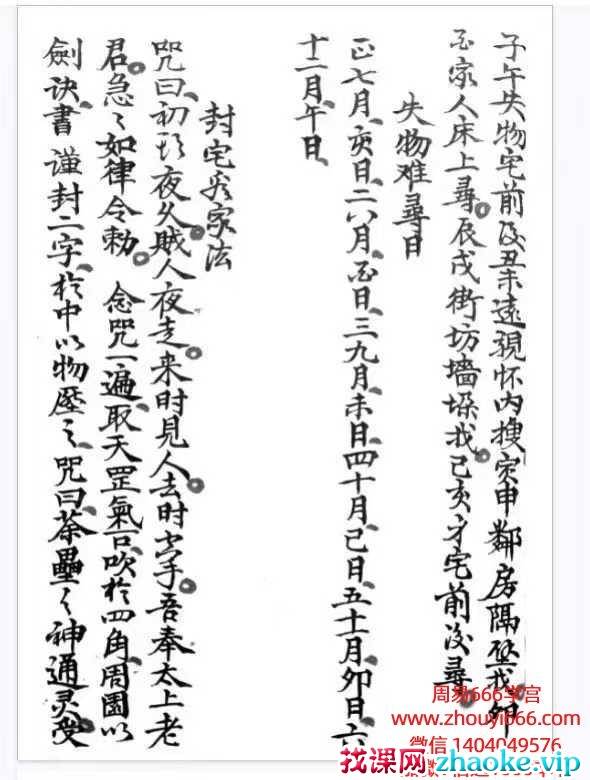 子午失物宅前後丑未遠親怀内搜寅申鄰房隔壁找卯
酉家人床上尋。辰戌街坊墙垛找。巳亥方宅前後尋
失物难尋日
正七月亥日二八月酉日三九月未日四十月巳日五十一月卯日六
十二月午日
封宅家法
咒曰初夜久賊人夜走。来时見人去时空手。吾奉太上老
君急々如律令勅 念咒一遍取天罡氣吹於四角周圍以
劍诀書 谨封二字於中以物壓之咒曰荼壘々神通灵受
周易666学宫
www.zhouyi666.com
微信 1404049576
找课网zhaoke.vip